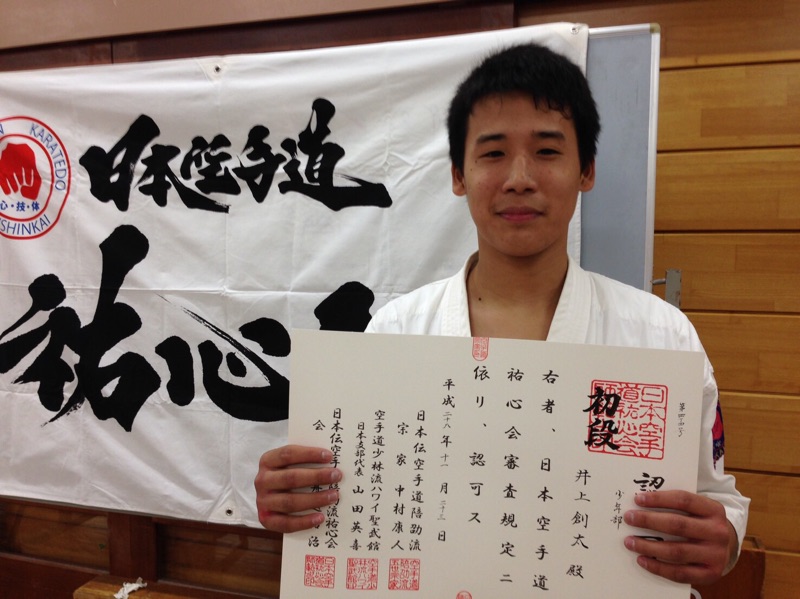 KARATEDO
心・技・体
SHINKAI
日本空手道
祐心
第四十四二号
認
少年部
井上創太 殿
初段
日本空手道祐心会
右者、日本空手道
祐心会審査規定ニ
依リ、認可ス
平成二十八年十一月二十三日
日本伝空手道陪励流
宗家 中村康人
空手道少林流ハワイ聖武館
日本支部代表 山田英喜
日本伝空手
流祐心会
会
治